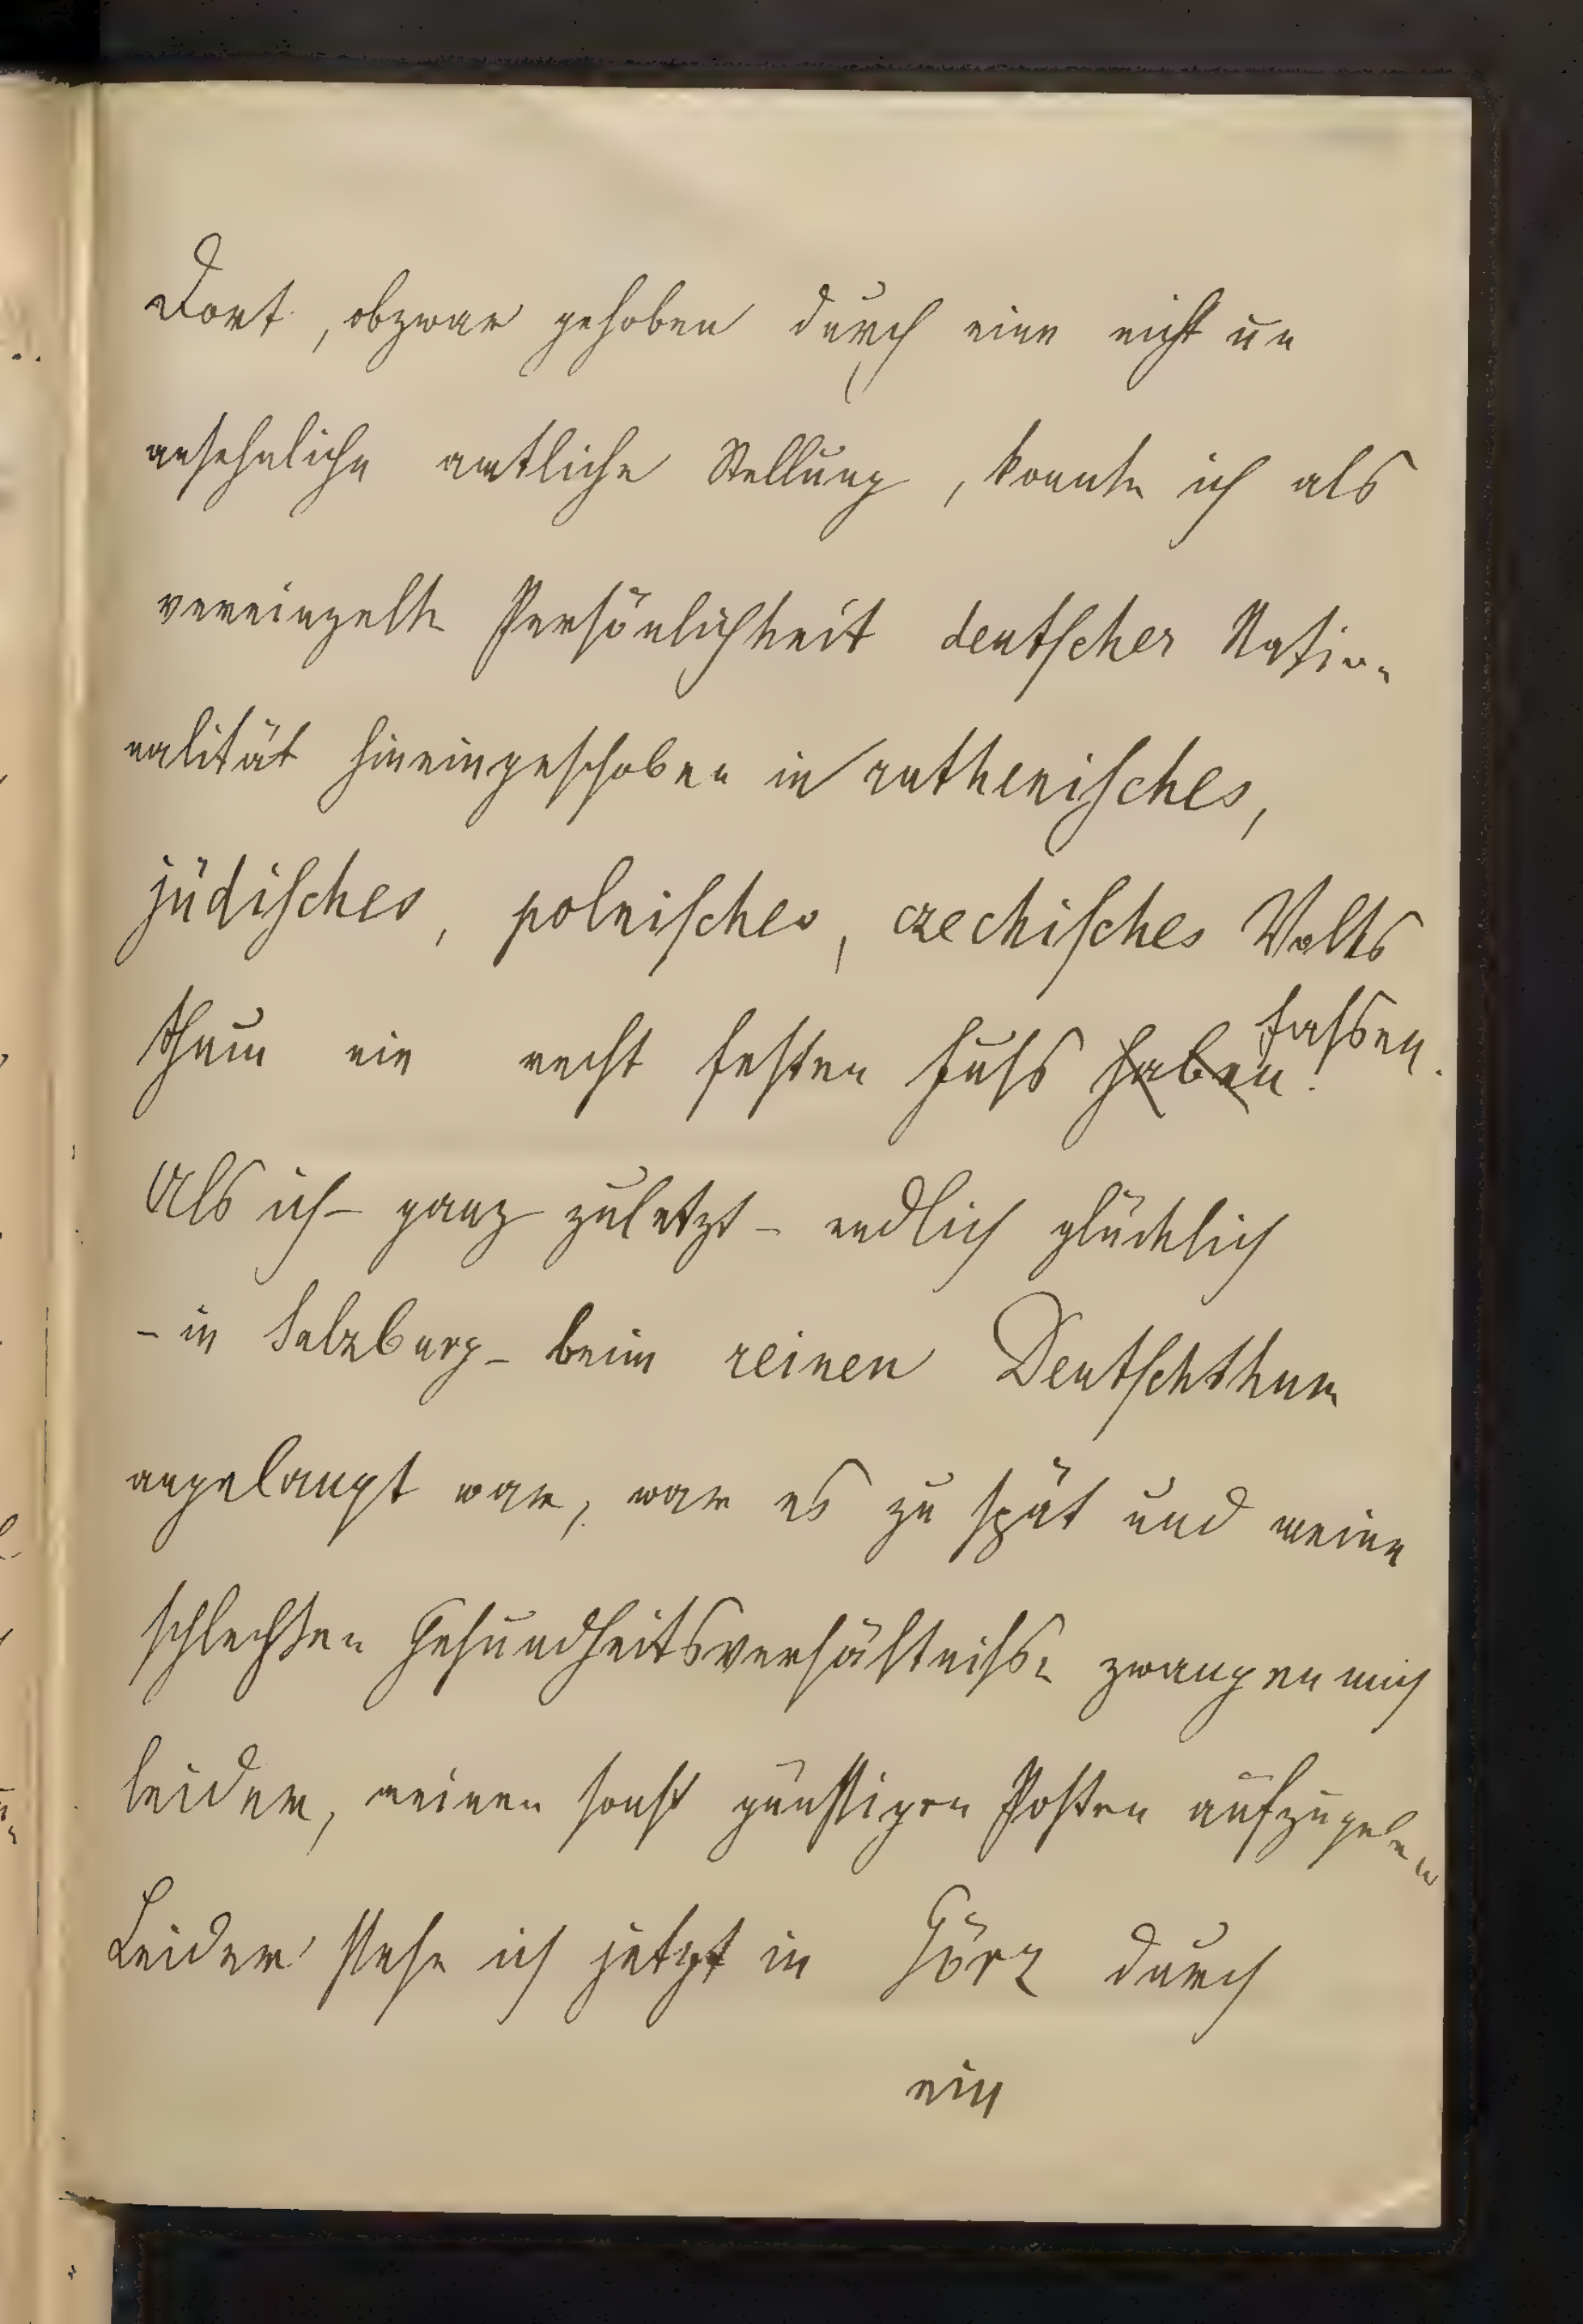 Dort, obzwar gehoben durch eine nicht un
ansehnliche amtliche Stellung, konnte ich als
vereinzelte Persönlichkeit deutscher Natio-
nalität hineingeschoben in ruthenisches,
jüdisches, polnisches, czechisches Volks
thum nie recht festen Fuß haben. fassen.
Als ich – ganz zuletzt – endlich glücklich
– in Salzburg – beim reinen Deutschthum
angelangt war, war es zu spät und meine
schlechten Gesundheitsverhältnisse zwangen mich
leider, meinen sonst günstigen Posten aufzugeben
Leider stehe ich jetzt in Görz durch
ein